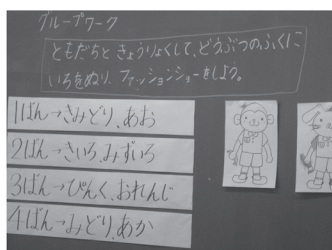 グループワーク
ともだちときょうりょくして、どうぶつのふくに
いろをぬり、ファッションショーをしよう。
1ぱん→きみどり、あお
2はん→きいろ、みずいろ
3ぱん→ぴんく、おれんじ
4ぱん→みどり、あか